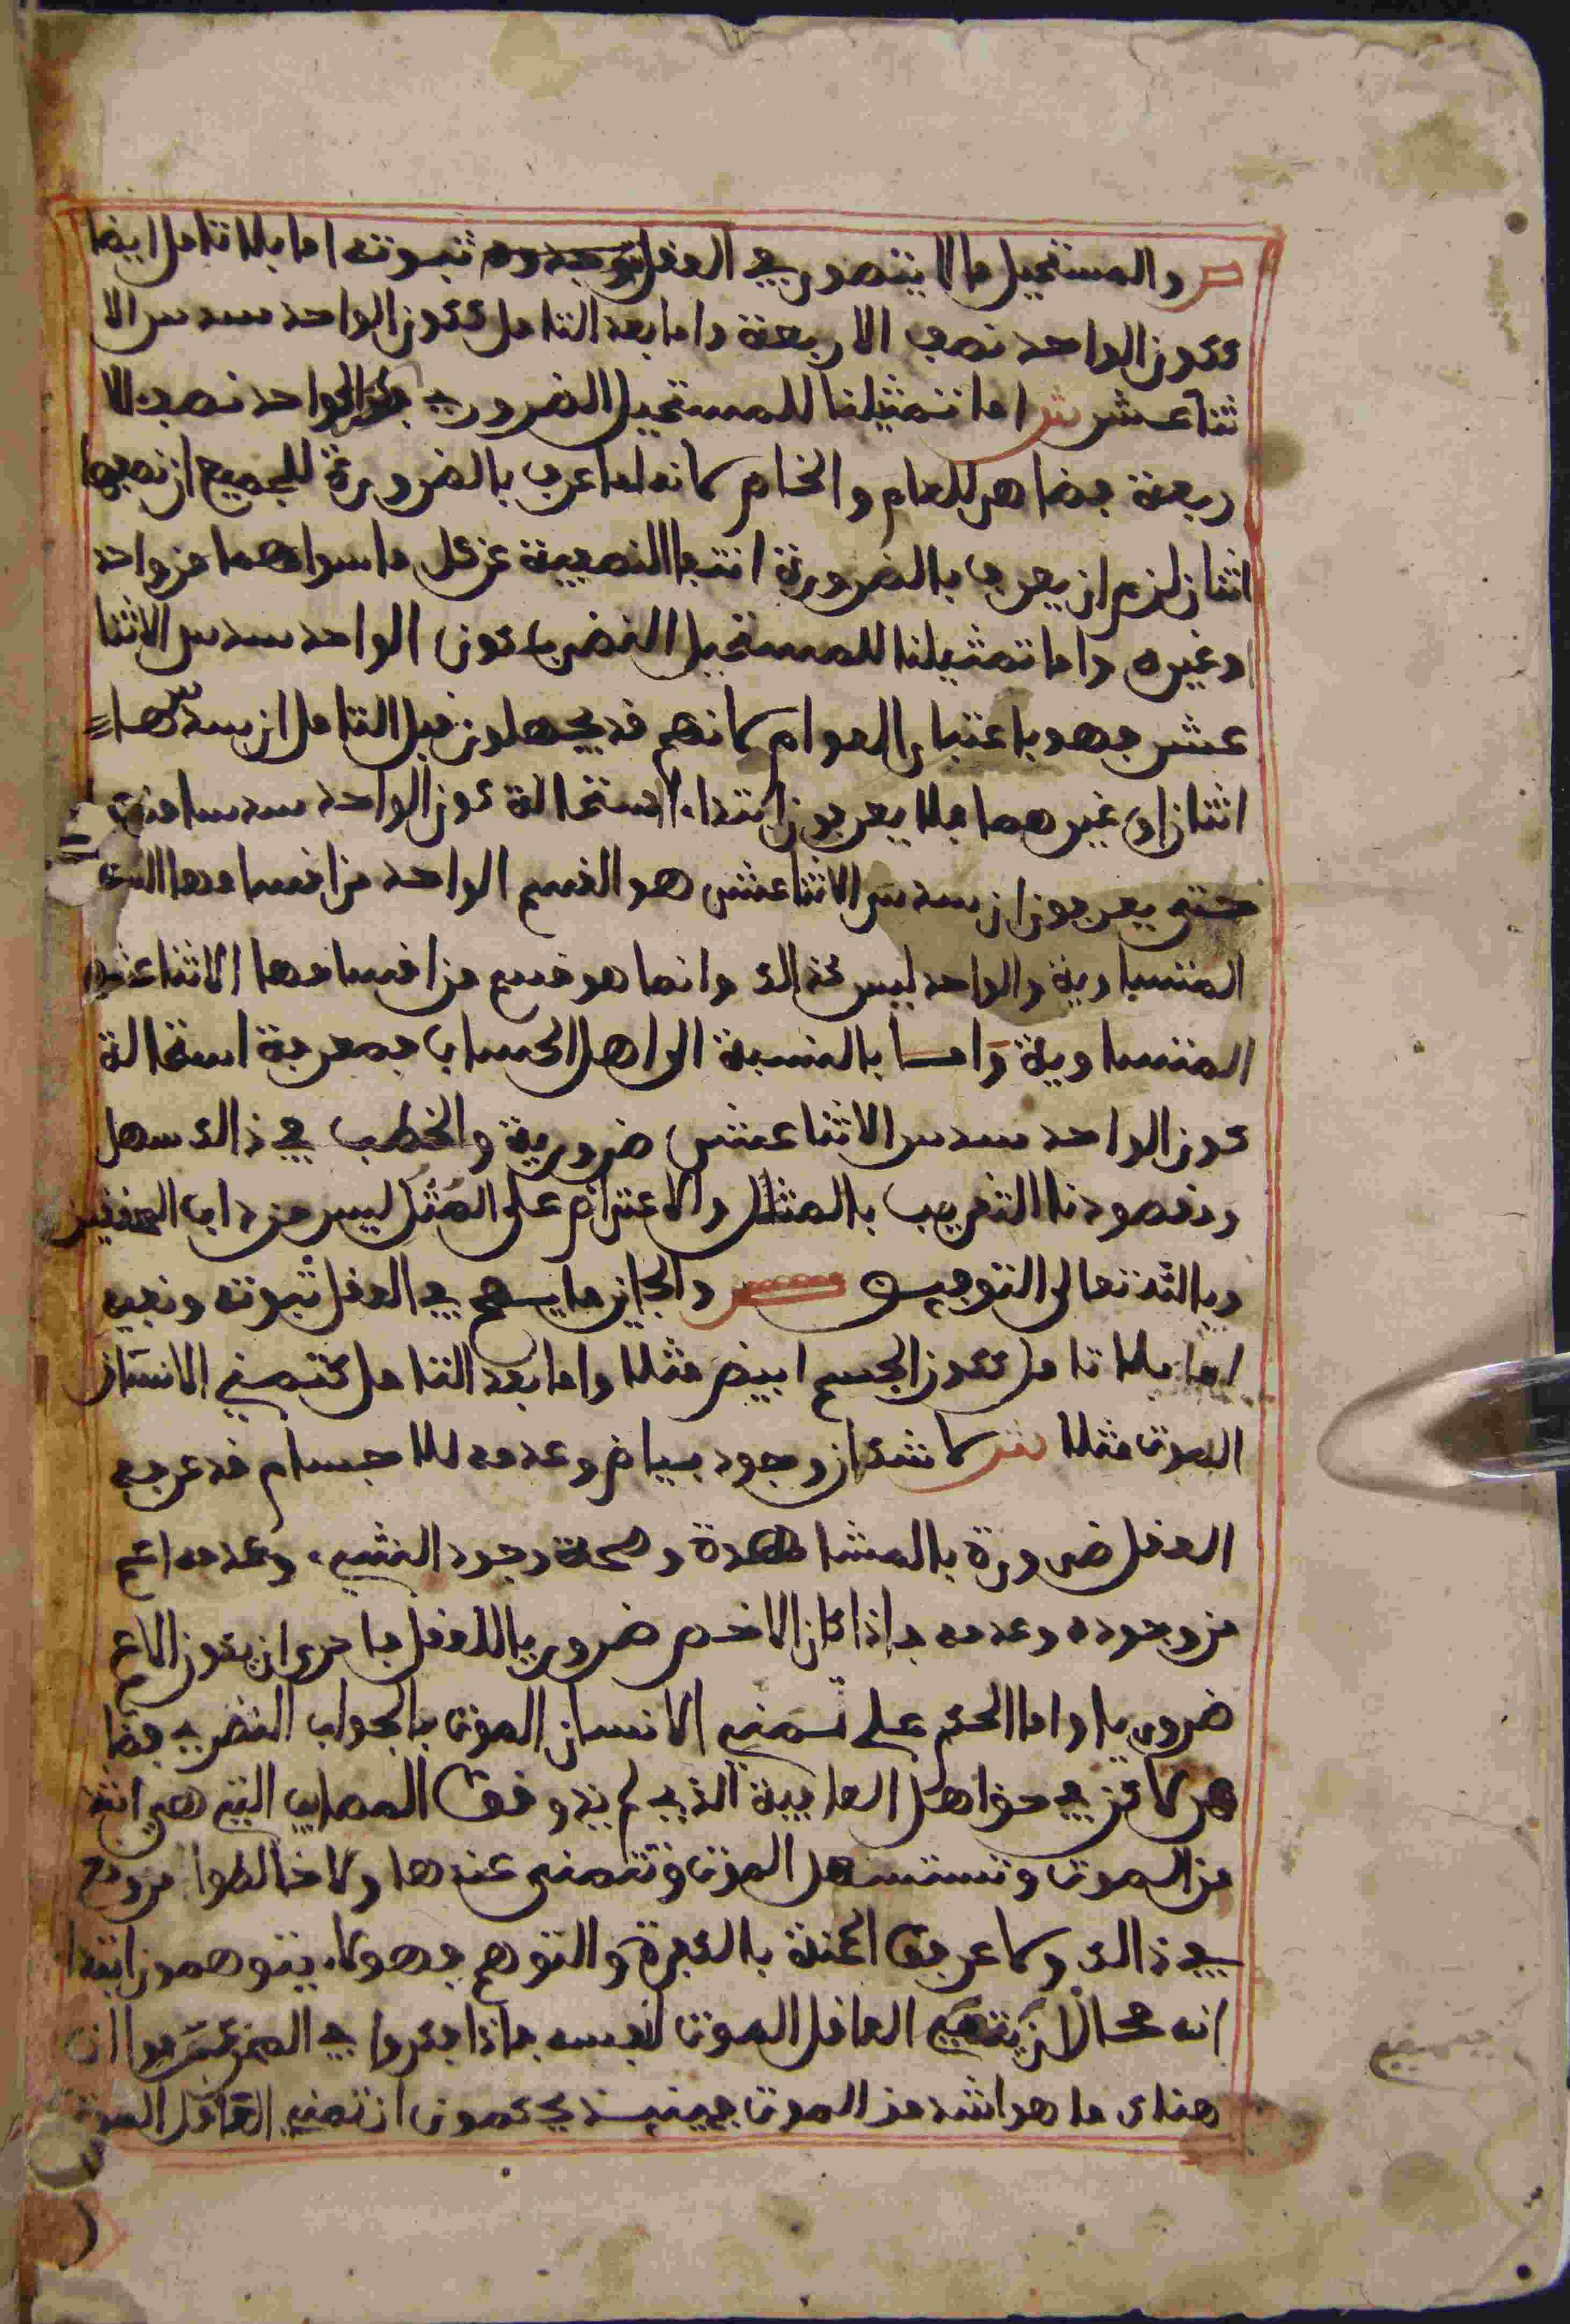 ص والمستحيل ما لا يتصور في العقل ثبوته اما بلا تامل ايضا
ككون الواحد نصف الاربعة واما بعد التامل ككون الواحد سدس الا
ثنا عشر ش اما تمثيلنا للمستحيل الضروري بكون الواحد نصف الا
ربعة فظاهر للعام والخاص لانه لما عرف بالضرورة للجميع ان نصفها
اثنان لزم ان يعرف بالضرورة انتفا النصفية عن كل ما سواهما من واحد
او غيره واما تمثيلنا للمستحيل النضري بكون الواحد سدس الاثنا
عشر فهو باعتبار العوام لانهم قد يجهلون قبل التامل ان سدسها
اثنان او غيرهما فلا يعرفون ابتداء استحالة كون الواحد سدسا منه
حتى يعرفون ان سدس الاثنا عشر هو القسم الواحد من اقسامها الستة
المتساوية والواحد ليس كذالك وانما هو قسم من اقسامها الاثنا عشر
المتساوية واما بالنسبة الى اهل الحساب فمعرفة استحالة
كون الواحد سدس الاثنا عشر ضرورية والخطب في ذالك سهل
ومقصودنا التقريب بالمثال والاعتراض على المثل ليس من داب المحققين
وبالله تعالى التوفيق ص والجايز ما يصح في العقل ثبوته ونفيه
اما بلا تامل ككون الجسم ابيض مثلا واما بعد التامل كتمني الانسان
الموت مثلا ش لا شك ان وجود بياض وعدمه للاجسام قد عرفه
العقل ضرورة بالمشاهدة وصحة وجود الشيء وعدمه اعم
من وجوده وعدمه فاذا كان الاخص ضروريا للعقل فاحرى ان يكون الاعم
ضروريا واما الحكم على تمني الانسان الموت بالجواب النضري فضا
هر لاكن في حق اهل العافية الذي لم يذوقو المصايب التي هي اشد
من الموت وتستسهل الموت وتتمنى عندها ولا خالطوا من وقع
في ذالك ولا عرفو المحنة بالفكرة والتوهم فهولاء يتوهمون ابتداء
انه محال ان يتمنى العاقل الموت لنفسه فاذا فكروا في المحن عرفوا ان
هناك ما هو اشد من الموت فحينيذ يحكمون ان تمني العاقل الموت